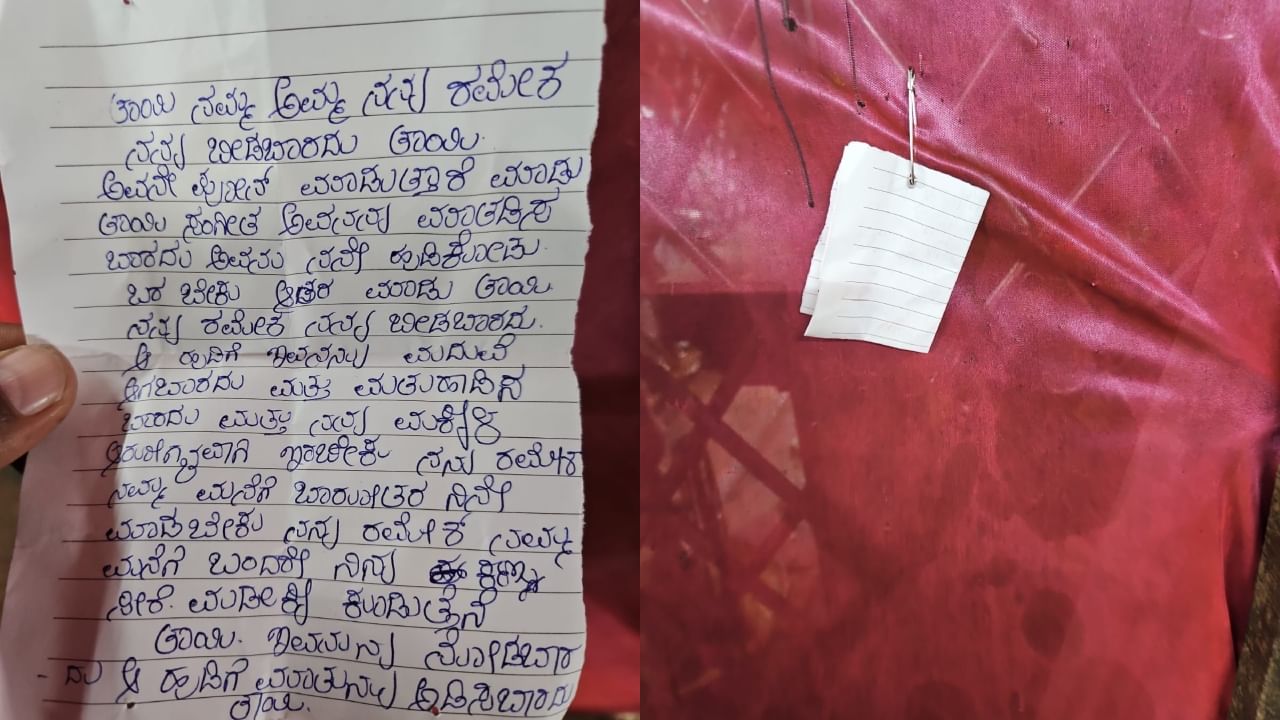 ತಾಯಿ ನಮ್ಮ ಅಮ್ಮ ನನ್ನ ರಮೇಶ
ನನ್ನ ಬೀಡಬಾರದು ತಾಯಿ.
ಅವನೇ ಪೋನ್ ಮಾಡುತ್ತಾರೆ ಮಾಡು
ತಾಯಿ ಸಂಗೀತ ಅವನನ್ನ ಮಾತಡಿಸ
ಬಾರದು ಅವನು ನನೇ ಹುಡಿಕೊಂಡು
ಬರ ಬೇಕು ಆತರ ಮಾಡು ತಾಯಿ
ನನ್ನ ರಮೇಶ ನನ್ನ ಬೀಡಬಾರದು.
ಆ ಹುಡಿಗೆ ಅವನನ್ನು ಮದುವೆ
ಆಗಬಾರದು ಮತ್ತು
ಬಾರದು ಮತ್ತು ನನ್ನ ಮಕ್ಕಳ
ನನ್ನ ರಮೇಶ
ನಮ್ಮ ಮನೆಗೆ ಬಾರುವತರ ನಿನೇ
ಮಾಡಬೇಕು ನನ್ನ ರಮೇಶ್ ನಮ್ಮ
ಮನೆಗೆ ಬಂದರೇ ನಿನ್ನ
ಸೀರೆ. ಮಡೀಲಕ್ಕಿ ಕೂಡುತ್ತೆನೆ
ತಾಯಿ. ಅವನನ್ನ ನೋಡಬಾರ
- ದು ಆ ಹುಡಿಗೆ ಮಾತನ್ನು ಅಡಿಸಬಾರದು
ತಾಯಿ.